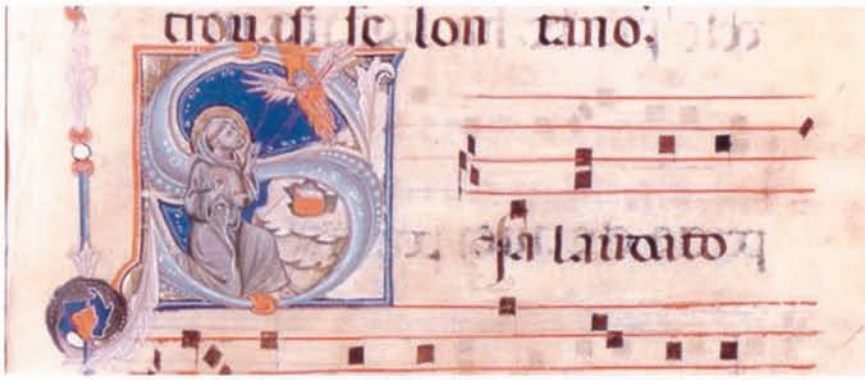 trouaſi ſe lon tano.
Sia laudato